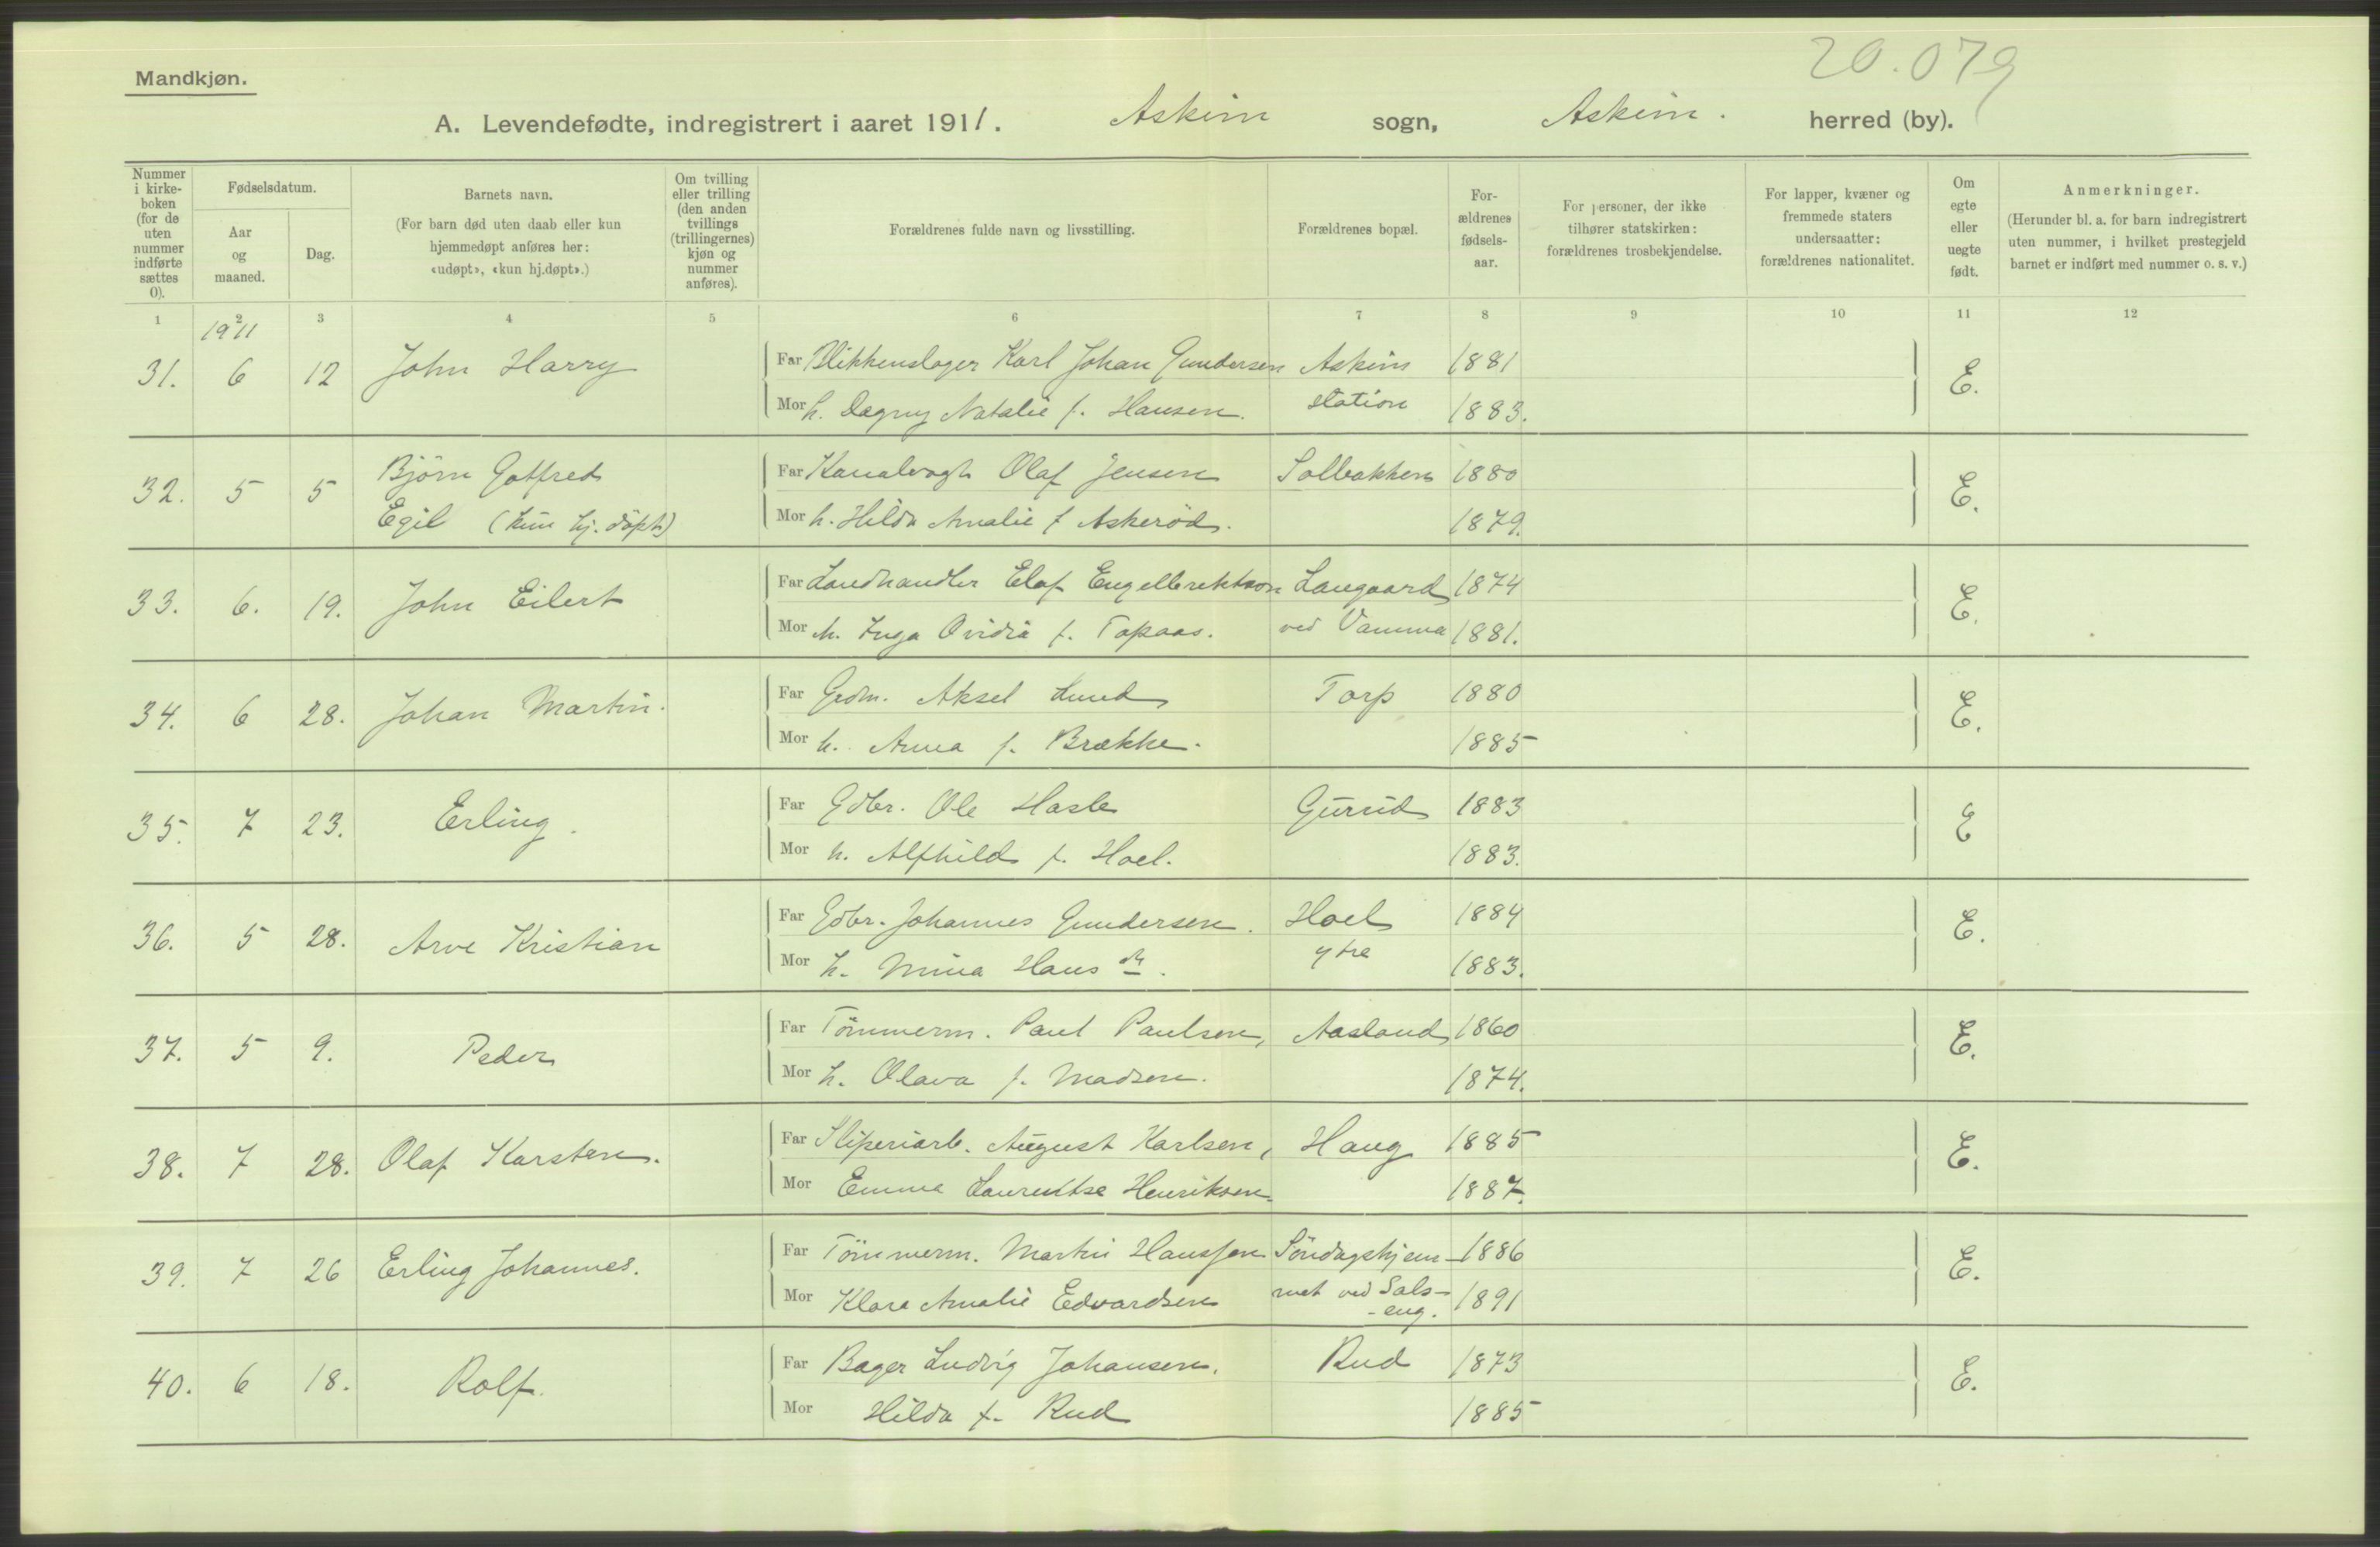 20.079
Mandkjøn.
A. Levendefødte, indregistrert i aaret 1911. Askim sogn, Askim. herred (by).
Nummer i kirke-boken (for de uten nummer indførte sættes 0).
Fødselsdatum.
Aar og maaned.
Dag.
Barnets navn.
(For barn død uten daab eller kun
hjemmedøpt anføres her:
«udøpt», «kun hj.døpt».)
Om tvilling
eller trilling
(den anden
tvillings
(trillingernes)
kjøn og
nummer
anføres).
Forældrenes fulde navn og livsstilling.
Forældrenes bopæl.
For-
ældrenes
fødsels-
aar.
For personer, der ikke
tilhører statskirken:
forældrenes trosbekjendelse.
For lapper, kvæner og
fremmede staters
undersaatter:
forældrenes nationalitet.
Om
egte
eller
uegte
født.
Anmerkninger.
(Herunder bl. a. for barn indregistrert
uten nummer, i hvilket prestegjeld
barnet er indført med nummer o. s. v.)
1 2 3 4 5 6 7 8 9 10 11 12
1911
31. 6 12 John Harry Far Blikkenslager Karl Johan Gundersen Askim 1881 E.
Mor h. Dagny Natalie f. Hansen. station 1883.
32. 5 5 Bjørn Gotfred Far Kanalvagt Olaf Jensen Solbakken 1880 E.
Egil (kun hj. døpt) Mor h. Hilda Amalie f Askerød. 1879.
33. 6. 19. John Eilert Far Landhandler Elaf Engelbrektson Langaard 1874 E.
Mor h. Inga Ovidia f. Topaas. ved Vamma 1881.
34. 6 28. Johan Martin. Far Grdm. Aksel Lund Torp 1880 E.
Mor h. Anna f. Brække. 1885
35. 7 23. Erling. Far Gdbr. Ole Hasle Gurud 1883 E
Mor h. Alfhild f. Hoel. 1883.
36. 5 28. Arve Kristian Far Gdbr. Johannes Gundersen. Hoel 1884 E.
Mor h. Mina Hans dt. ytre 1883.
37. 5 9. Peder Far Tømmerm. Paul Paulsen, Aasland 1860 E.
Mor h. Olava f. Madsen. 1874.
38. 7 28. Olaf Karsten. Far Sliperiarb. August Karlsen, Haug 1885 E.
Mor Emma Laurentse Henriksen. 1887.
39. 7 26 Erling Johannes. Far Tømmerm. Martin Hanssen Søndagshjem- 1886 E.
Mor Klara Amalie Edvardsen met ved Sals- 1891
-eng.
40. 6 18. Rolf. Far Bager Ludvig Johansen. Rud 1873 E.
Mor Hilda f. Rud 1885